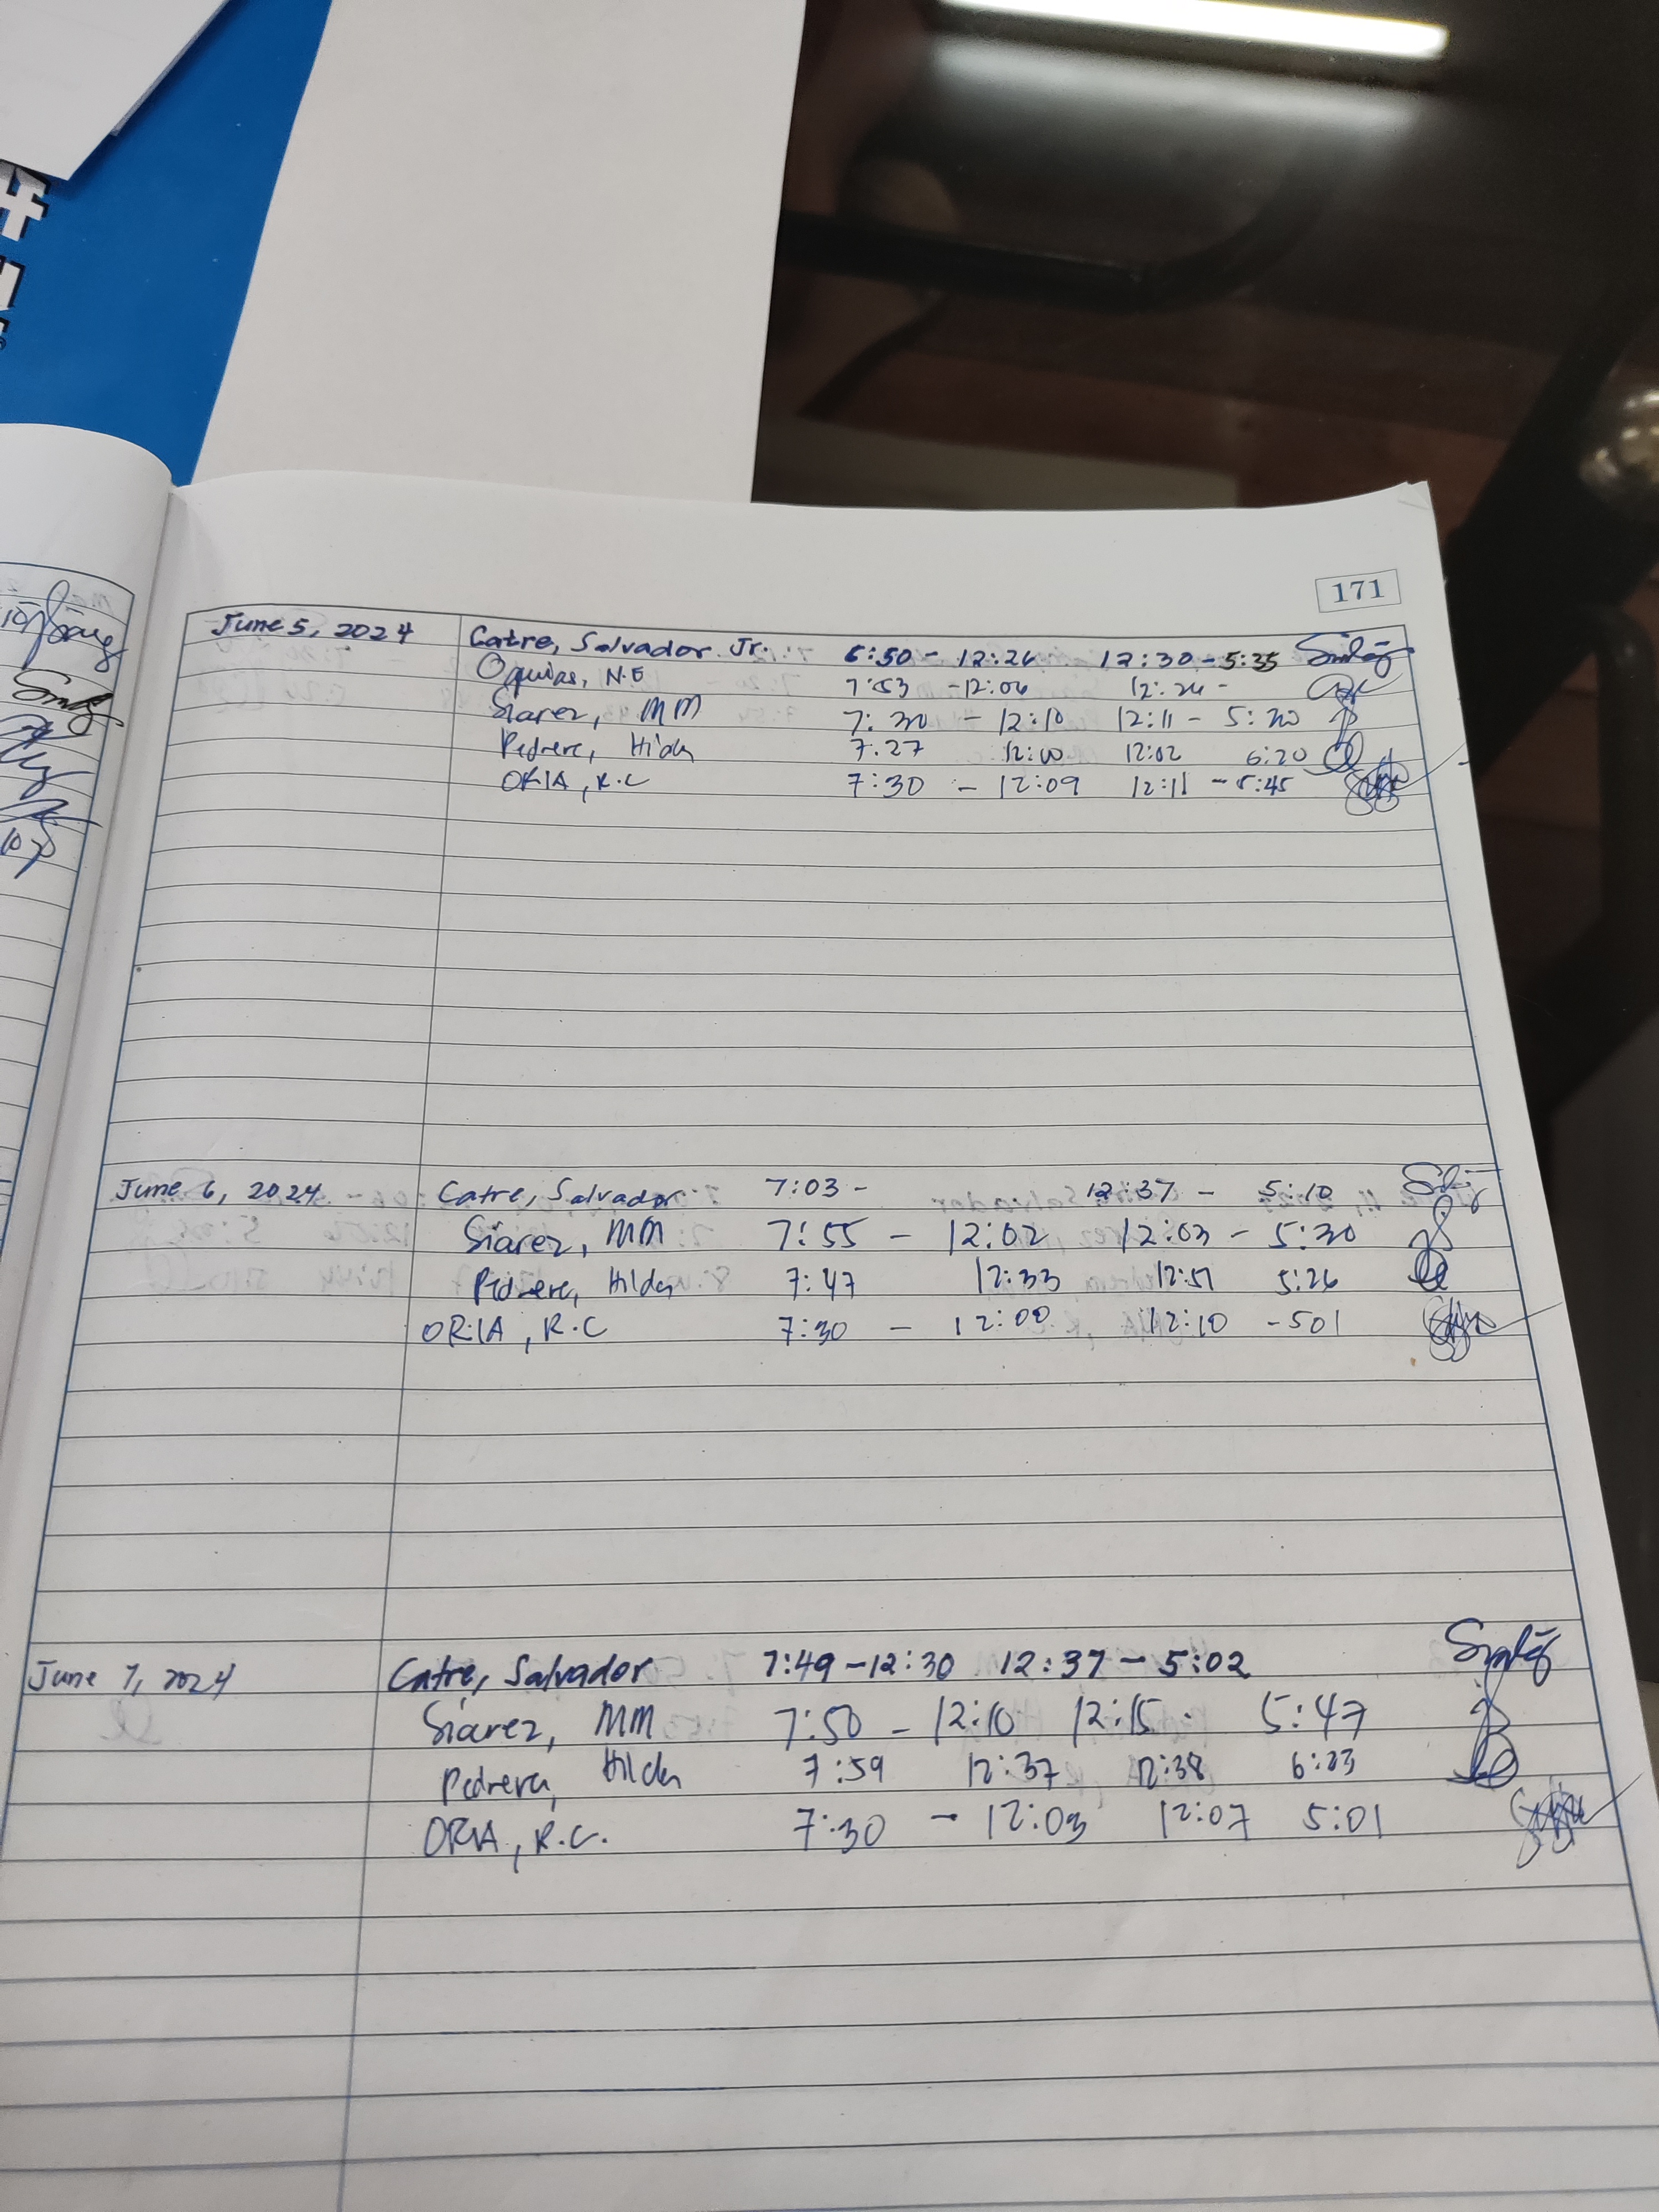 171
June 5, 2024 Catre, Salvador Jr. 6:50 - 12:26 12:30 - 5:35
Oquias, N.E 7:53 - 12:06 12:26 -
Siarez, MM 7:30 - 12:10 12:11 - 5:30
Pedrera, Hilda 7:27 12:00 12:02 6:20
ORIA, R.C 7:30 - 12:09 12:11 - 5:45
June 6, 2024 Catre, Salvador 7:03 - 12:37 - 5:10
Siarez, MM 7:55 - 12:02 12:03 - 5:30
Pedrera, Hilda 7:47 12:33 12:51 5:26
ORIA, R.C 7:30 - 12:00 12:10 - 501
June 7, 2024 Catre, Salvador 7:49 - 12:30 12:37 - 5:02
Siarez, MM 7:50 - 12:10 12:15 5:47
Pedrera, Hilda 7:59 12:37 12:38 6:23
ORIA, R.C. 7:30 - 12:03 12:07 5:01